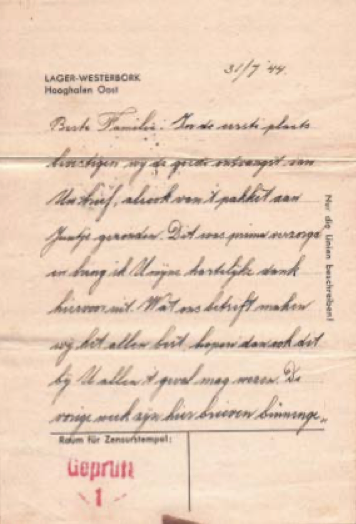 31/7 '44.
LAGER-WESTERBORK
Hooghalen Oost
Beste Familie: In de eerste plaats
bevestigen wij de goede ontvangst van
Uw brief, alsook van 't pakket aan
gezonden. Dit was prima verzorgd
en breng ik U mijne hartelijke dank
hiervoor uit. Wat ons betreft maken
wij het allen best, hopen dan ook dit
bij U allen 't geval mag wezen. De
vorige week zijn hier brieven binnenge-
Nur die Linien beschreiben!
Raum für Zensurstempel:
Geprüft
1